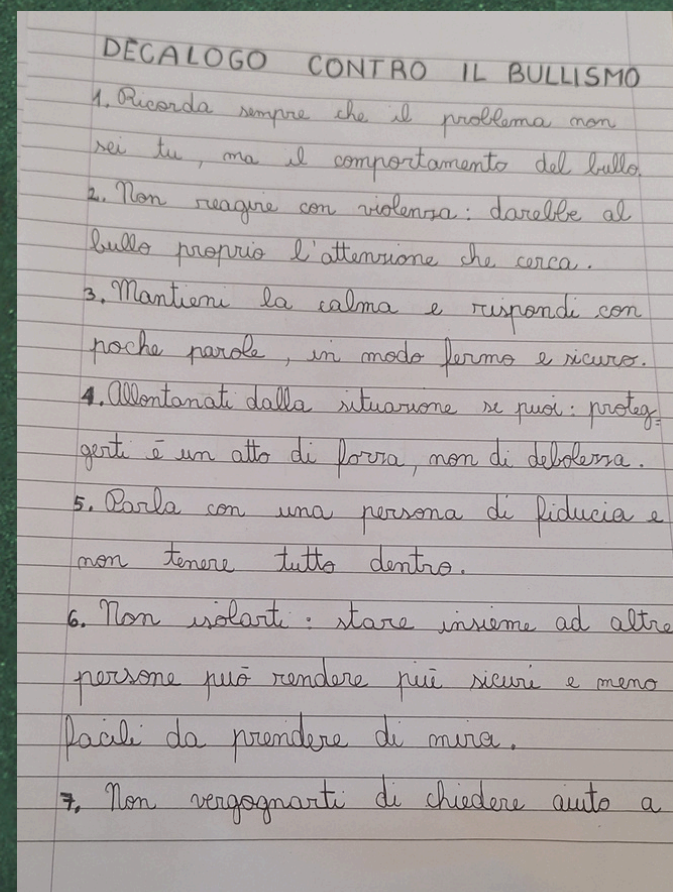 DECALOGO CONTRO IL BULLISMO
1. Ricorda sempre che il problema non
sei tu, ma il comportamento del bullo.
2. Non reagire con violenza: darebbe al
bullo proprio l'attenzione che cerca.
3. Mantieni la calma e rispondi con
poche parole, in modo fermo e sicuro.
4. Allontanati dalla situazione se puoi: proteg=
gerti è un atto di forza, non di debolezza.
5. Parla con una persona di fiducia e
non tenere tutto dentro.
6. Non isolarti: stare insieme ad altre
persone può rendere più sicuri e meno
facili da prendere di mira.
7. Non vergognarti di chiedere aiuto a